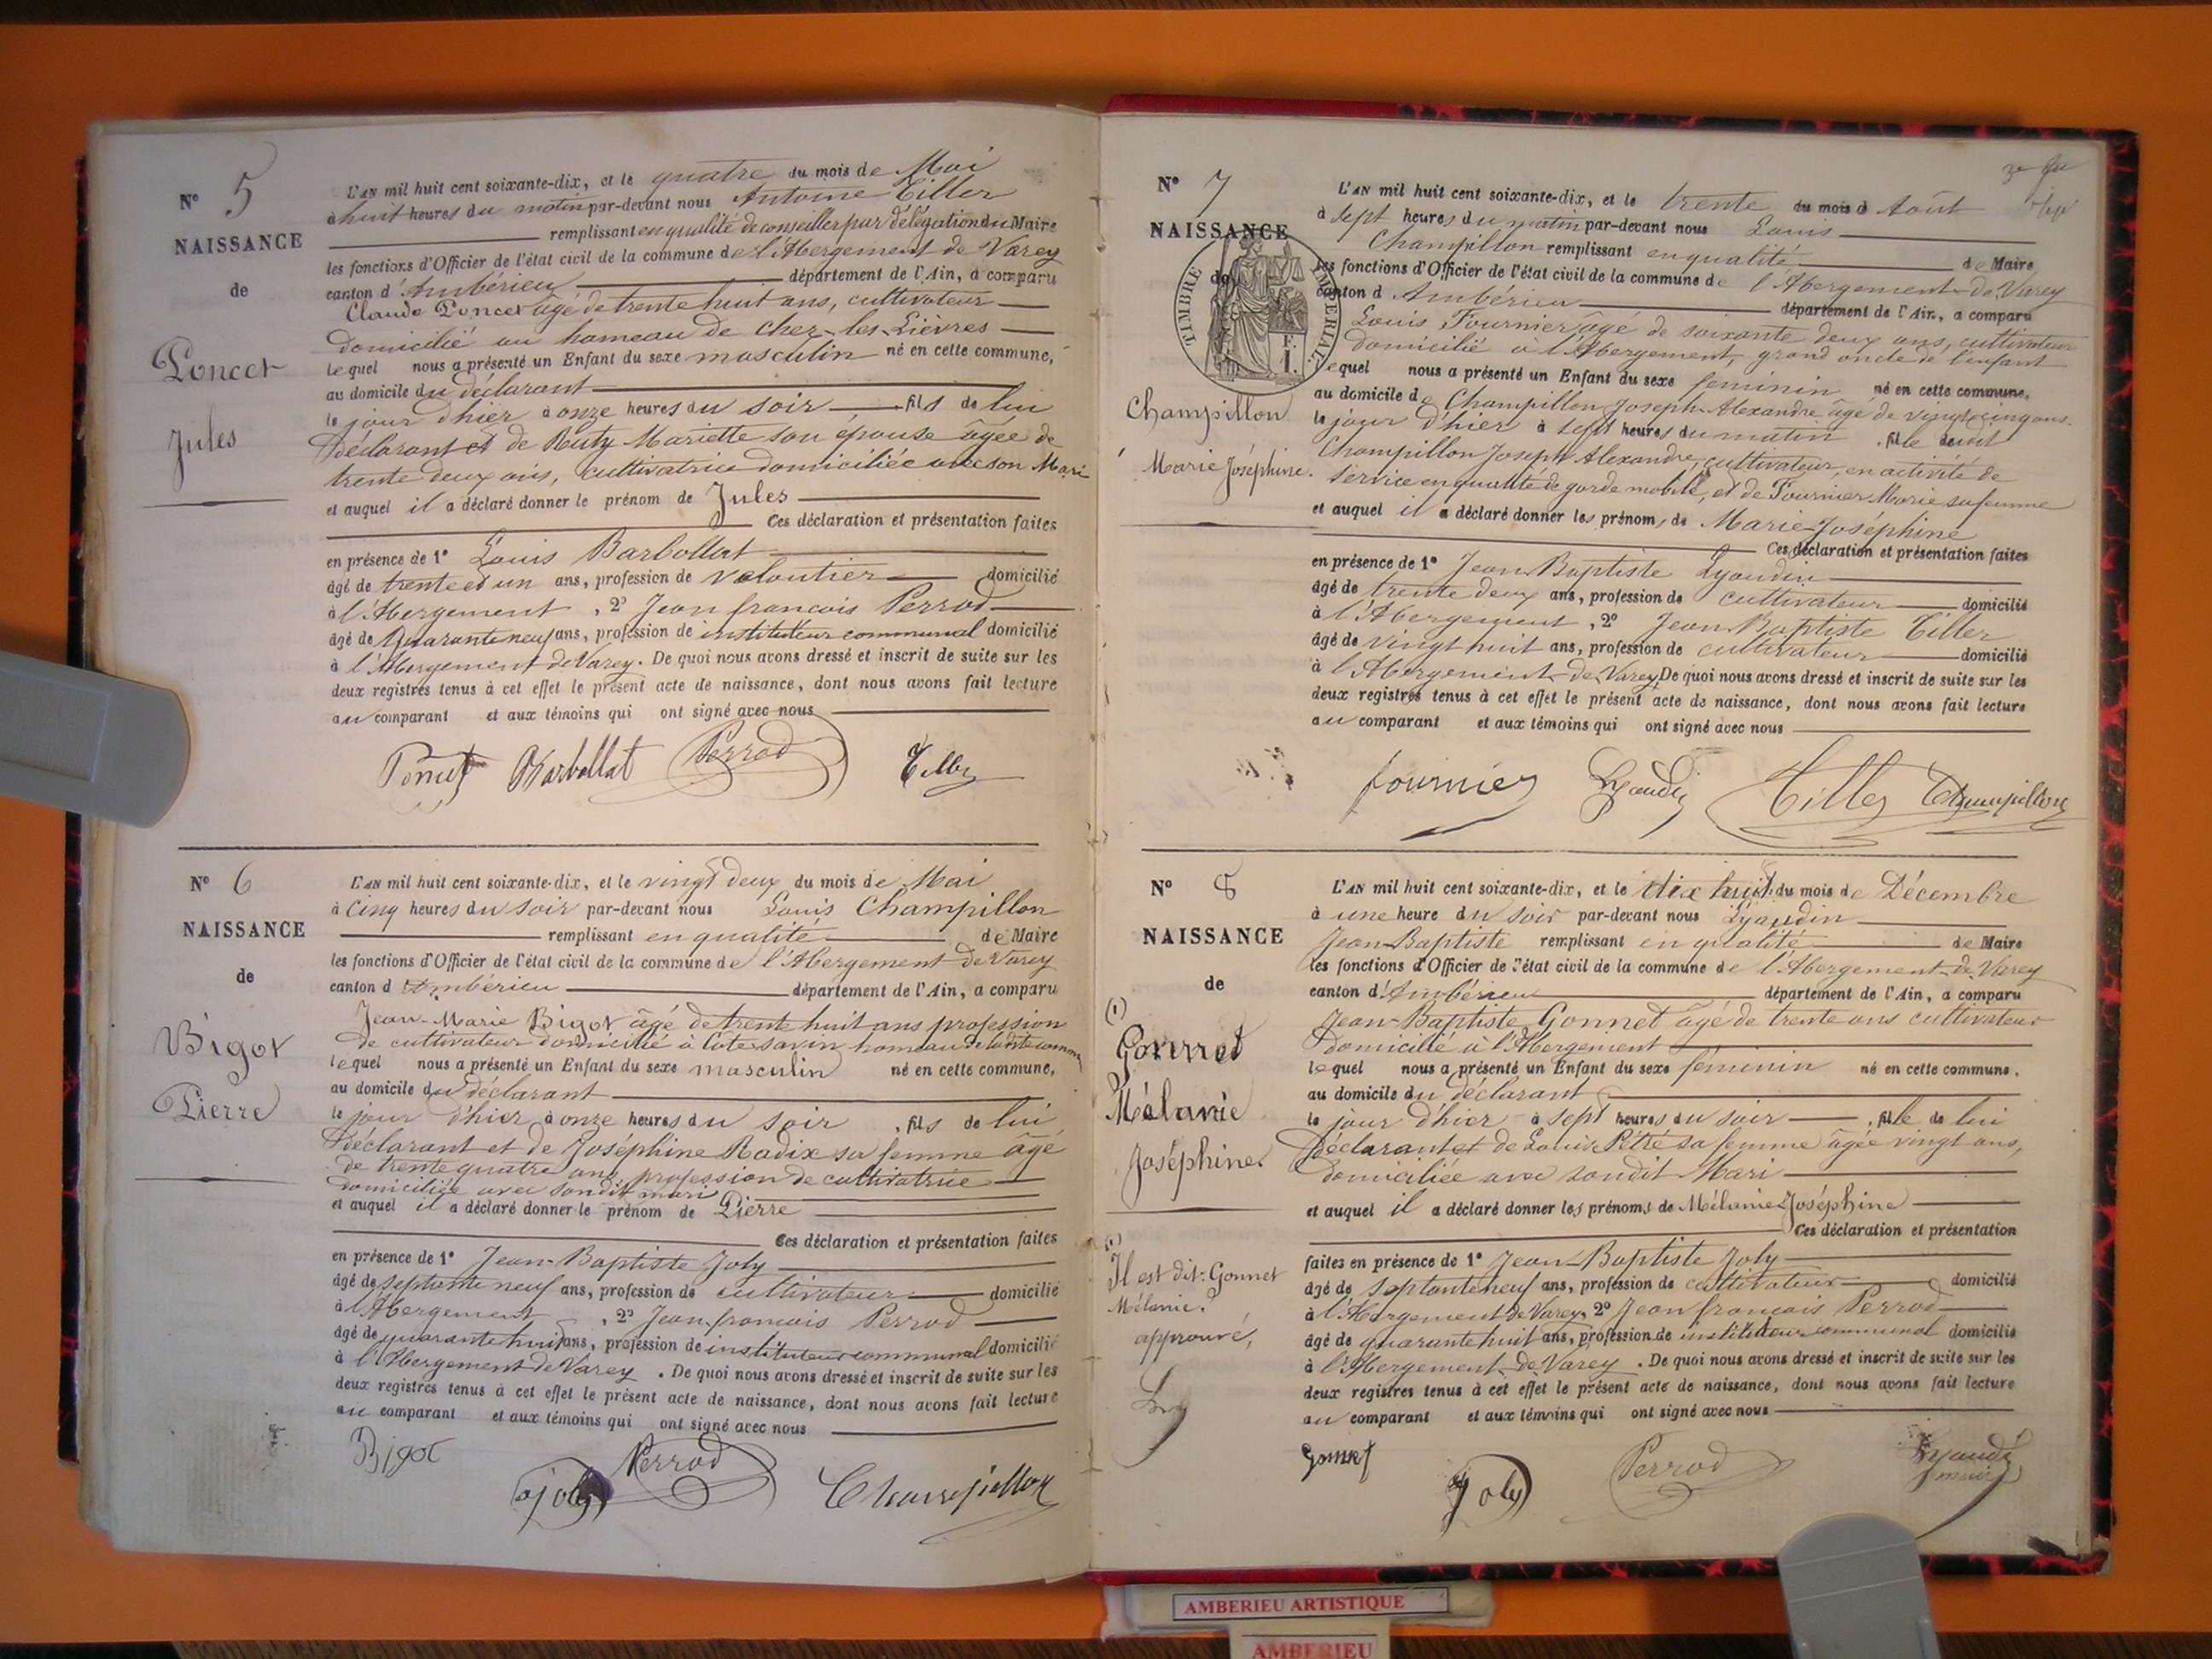 N° 5
NAISSANCE
de
Poncet
Jules
L'AN mil huit cent soixante-dix, et le quatre du mois de Mai
à huit heures du matin par-devant nous Antoine Tiller
remplissant en qualité de conseiller par délégation du Maire
les fonctions d'Officier de l'état civil de la commune de l'Abergement de Varey
canton d'Ambérieu département de l'Ain, a comparu
Claude Poncet âgé de trente huit ans, cultivateur
domicilié au hameau de chez-les-Lièvres
lequel nous a présenté un Enfant du sexe masculin né en cette commune,
au domicile du déclarant
le jour d'hier à onze heures du soir fils de lui
déclarant et de Ruty Mariette son épouse âgée de
trente deux ans, cultivatrice domiciliée avec son Mari
et auquel il a déclaré donner le prénom de Jules
Ces déclaration et présentation faites
en présence de 1° Louis Barbollat
âgé de trente et un ans, profession de veloutier domicilié
à l'Abergement, 2° Jean françois Perrod
âgé de Quarante neuf ans, profession de instituteur communal domicilié
à l'Abergement de Varey. De quoi nous avons dressé et inscrit de suite sur les
deux registres tenus à cet effet le présent acte de naissance, dont nous avons fait lecture
au comparant et aux témoins qui ont signé avec nous
Poncet Barbollat Perrod Tiller
N° 6
NAISSANCE
de
Bigot
Pierre
L'AN mil huit cent soixante-dix, et le vingt deux du mois de Mai
à Cinq heures du soir par-devant nous Louis Champillon
remplissant en qualité de Maire
les fonctions d'Officier de l'état civil de la commune de l'Abergement de Varey
canton d'Ambérieu département de l'Ain, a comparu
Jean-Marie Bigot âgé de trente huit ans profession
de cultivateur domicilié à Côte savin hameau de ladite commune
lequel nous a présenté un Enfant du sexe masculin né en cette commune,
au domicile du déclarant
le jour d'hier à onze heures du soir, fils de lui
déclarant et de Joséphine Radix sa femme âgé
de trente quatre ans profession de cultivatrice
domiciliée avec sondit mari
et auquel il a déclaré donner le prénom de Pierre
Ces déclaration et présentation faites
en présence de 1° Jean-Baptiste Joly
âgé de septante neuf ans, profession de cultivateur domicilié
à l'Abergement, 2° Jean-françois Perrod
âgé de quarante huit ans, profession de instituteur communal domicilié
à l'Abergement de Varey. De quoi nous avons dressé et inscrit de suite sur les
deux registres tenus à cet effet le présent acte de naissance, dont nous avons fait lecture
au comparant et aux témoins qui ont signé avec nous
Bigot joly Perrod Champillon
N° 7
NAISSANCE
de
TIMBRE IMPERIAL
Champillon
Marie Joséphine.
L'AN mil huit cent soixante-dix, et le trente du mois d'Août
à Sept heures du matin par-devant nous Louis
Champillon remplissant en qualité de Maire
les fonctions d'Officier de l'état civil de la commune de l'Abergement-de-Varey
canton d'Ambérieu département de l'Ain, a comparu
Louis Fournier âgé de soixante deux ans, cultivateur
domicilié à l'Abergement, grand oncle de l'enfant
lequel nous a présenté un Enfant du sexe féminin né en cette commune,
au domicile de Champillon Joseph-Alexandre âgé de vingt cinq ans.
le jour d'hier à sept heures du matin, fille dudit
Champillon Joseph Alexandre, cultivateur, en activité de
service en qualité de garde mobile, et de Fournier Marie sa femme
et auquel il a déclaré donner les prénoms de Marie-Joséphine
Ces déclaration et présentation faites
en présence de 1° Jean Baptiste Lyaudin
âgé de trente deux ans, profession de cultivateur domicilié
à l'Abergement, 2° Jean-Baptiste Tiller
âgé de vingt huit ans, profession de cultivateur domicilié
à l'Abergement de Varey De quoi nous avons dressé et inscrit de suite sur les
deux registres tenus à cet effet le présent acte de naissance, dont nous avons fait lecture
au comparant et aux témoins qui ont signé avec nous
fournier Lyaudin Tiller Champillon
N° 8
NAISSANCE
de
(1)
Gonnet
Mélanie
Joséphine
(1)
Il est dit: Gonnet
Mélanie.
approuvé,
L'AN mil huit cent soixante-dix, et le dix huit du mois de Décembre
à une heure du soir par-devant nous Lyaudin
Jean-Baptiste remplissant en qualité de Maire
les fonctions d'Officier de l'état civil de la commune de l'Abergement-de-Varey
canton d'Ambérieu département de l'Ain, a comparu
Jean-Baptiste Gonnet âgé de trente ans cultivateur
domicilié à l'Abergement
lequel nous a présenté un Enfant du sexe féminin né en cette commune,
au domicile du déclarant
le jour d'hier à sept heures du soir, fille de lui
déclarant et de Louise Pétré sa femme âgée vingt ans,
domiciliée avec sondit Mari
et auquel il a déclaré donner les prénoms de Mélanie Joséphine
Ces déclaration et présentation
faites en présence de 1° Jean-Baptiste Joly
âgé de Septante neuf ans, profession de cultivateur domicilié
à l'Abergement de Varey, 2° Jean françois Perrod
âgé de quarante huit ans, profession de instituteur communal domicilié
à l'Abergement de Varey. De quoi nous avons dressé et inscrit de suite sur les
deux registres tenus à cet effet le présent acte de naissance, dont nous avons fait lecture
au comparant et aux témoins qui ont signé avec nous
Gonnet Joly Perrod Lyaudin
maire
AMBERIEU ARTISTIQUE
AMBERIEU